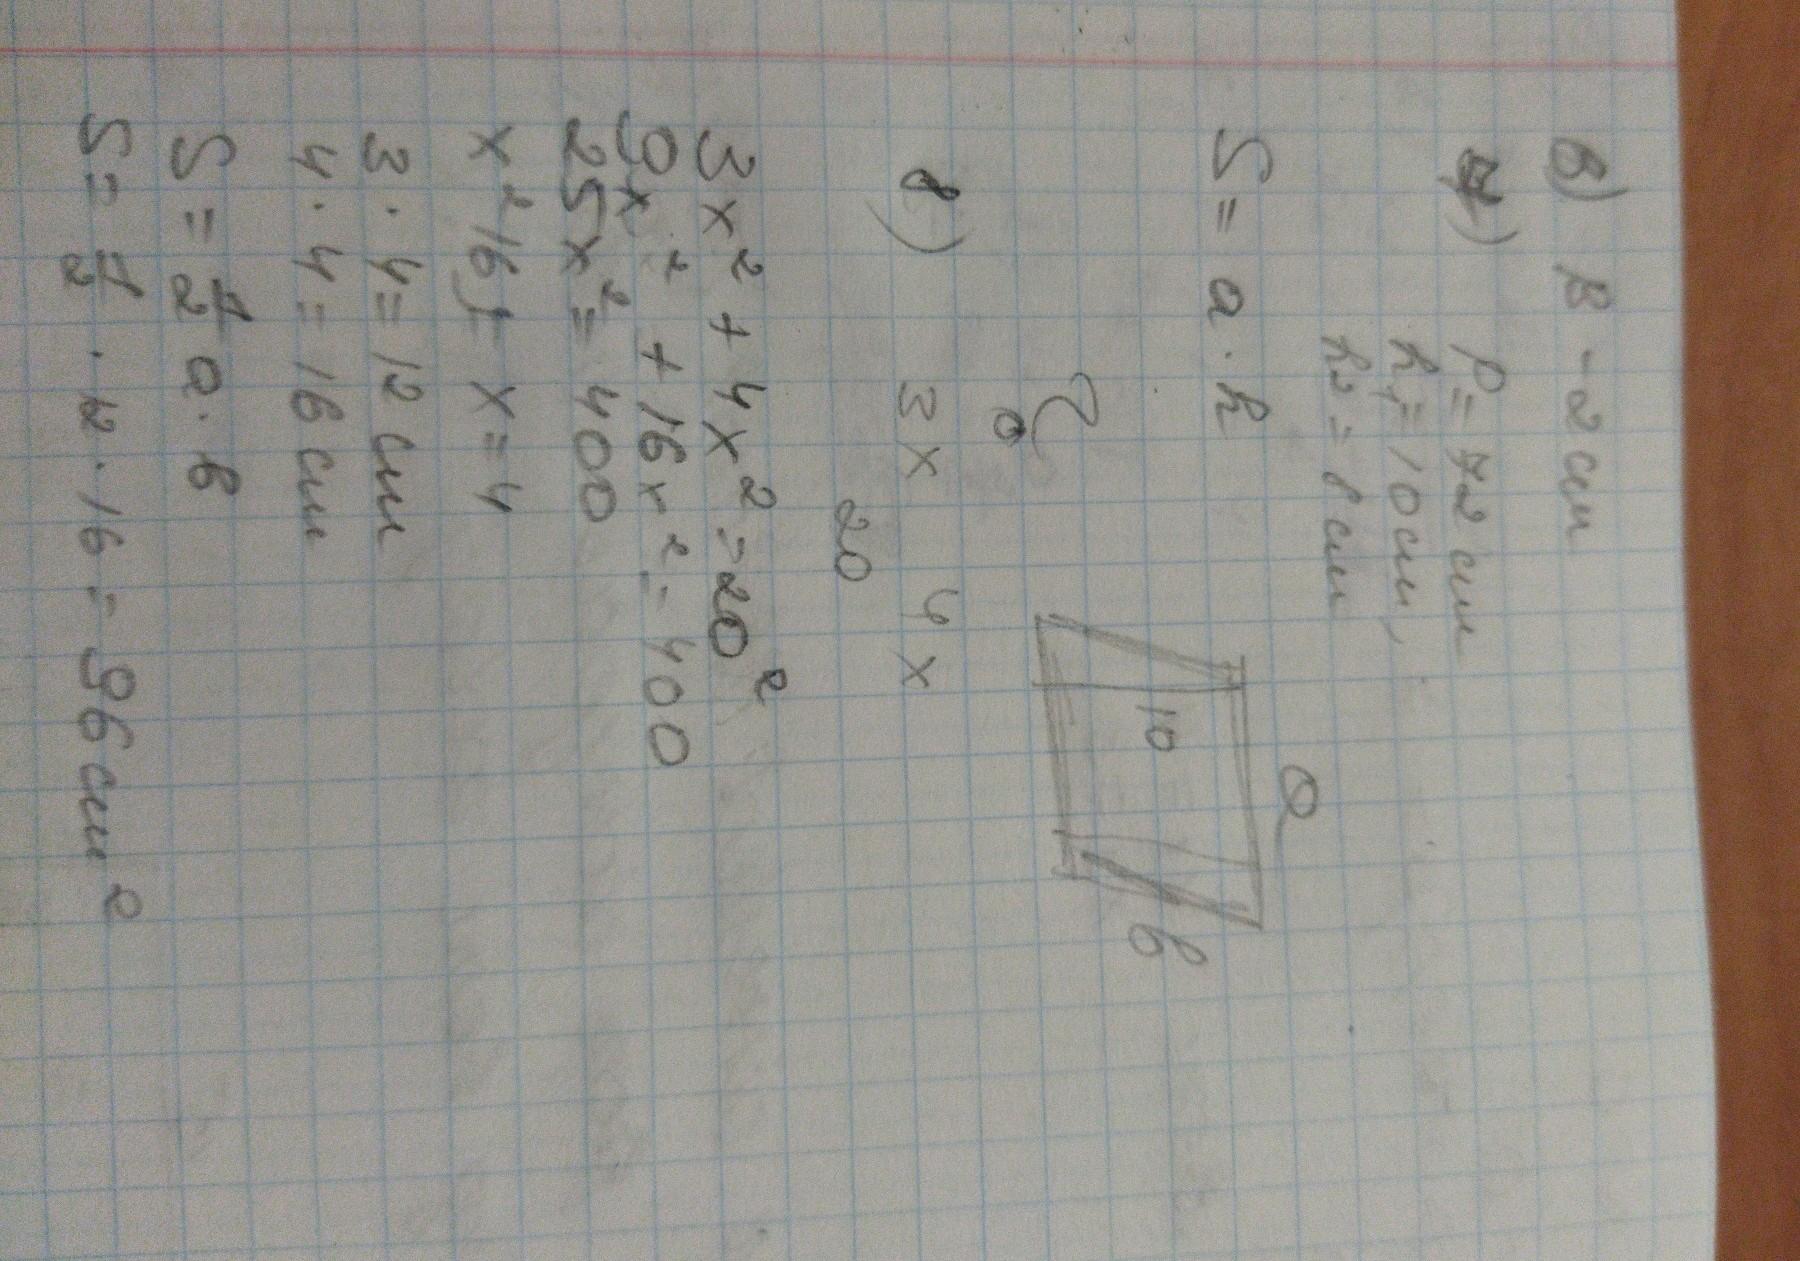 в) В - 2 см
7) P = 72 см
h₁ = 10 см,
h₂ = 8 см
S = a · h
a
10
b
8) 3x 4x
20
3x² + 4x² = 20²
9x² + 16x² = 400
25x² = 400
x² 16) x = 4
3 · 4 = 12 см
4 · 4 = 16 см
S = 1/2 a · b
S = 1/2 · 12 · 16 = 96 см²